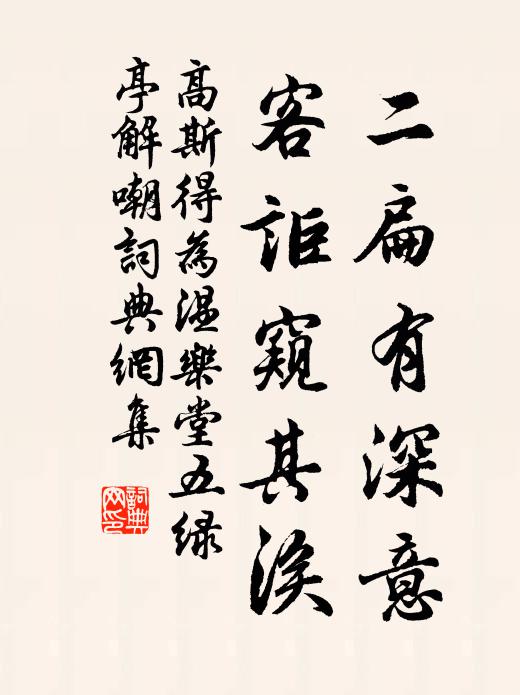 二扁有深意
客詎窺其涘
高斯得為温樂堂五绿
亭解嘲詞典網集
詞典網印